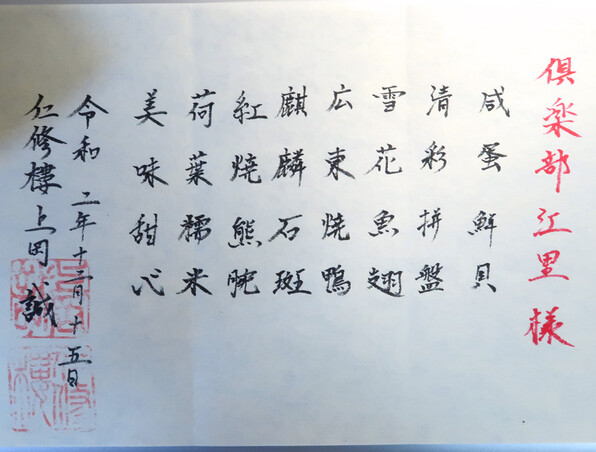 倶楽部江里様
咸蛋鮮貝
清彩拼盤
雪花魚翅
広東焼鴨
麒麟石斑
紅焼熊腕
荷葉糯米
美味甜心
令和二年十二月十五日
仁修樓上岡誠